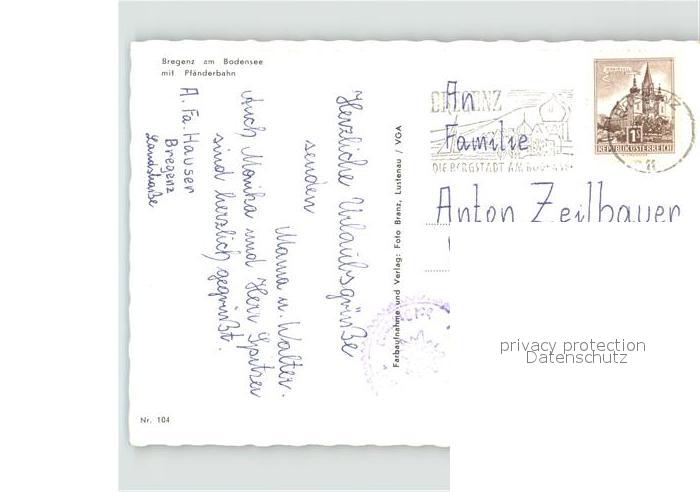 Bregenz am Bodensee
mit Pfänderbahn
Herzliche Urlaubsgrüße
senden
Mama u. Walter.
Auch Monika und Herr Spitzer
sind herzlich gegrüßt.
A. Fa. Hauser
Bregenz
Landstraße
Nr. 104
Farbaufnahme und Verlag: Foto Branz, Lustenau / VGA
BREGENZ
DIE BERGSTADT AM BODENSEE
1S
REPUBLIK ÖSTERREICH
An
Familie
Anton Zeilbauer
privacy protection
Datenschutz